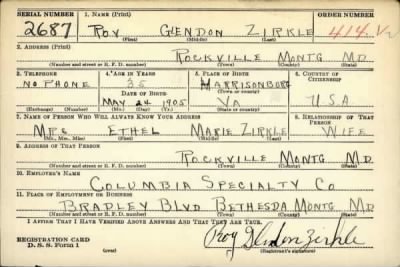 SERIAL NUMBER 1. NAME (Print) ORDER NUMBER
2687 ROY GLENDON ZIRKLE 414.V2
(First) (Middle) (Last)
2. ADDRESS (Print)
ROCKVILLE MONTG MD.
(Number and street or R. F. D. number) (Town) (County) (State)
3. TELEPHONE 4. AGE IN YEARS 5. PLACE OF BIRTH 6. COUNTRY OF CITIZENSHIP
NO PHONE 35 HARRISONBURG
DATE OF BIRTH (Town or county)
MAY 24 1905 VA U.S.A
(Exchange) (Number) (Mo.) (Day) (Yr.) (State or country)
7. NAME OF PERSON WHO WILL ALWAYS KNOW YOUR ADDRESS 8. RELATIONSHIP OF THAT PERSON
MRS ETHEL MARIE ZIRKLE WIFE
(Mr., Mrs., Miss) (First) (Middle) (Last)
9. ADDRESS OF THAT PERSON
ROCKVILLE MONTG MD.
(Number and street or R. F. D. number) (Town) (County) (State)
10. EMPLOYER'S NAME
COLUMBIA SPECIALTY CO
11. PLACE OF EMPLOYMENT OR BUSINESS
BRADLEY BLVD BETHESDA MONTG MD
(Number and street or R. F. D. number) (Town) (County) (State)
I AFFIRM THAT I HAVE VERIFIED ABOVE ANSWERS AND THAT THEY ARE TRUE.
REGISTRATION CARD
D. S. S. Form 1 Roy Glendon Zirkle
(Registrant's signature)